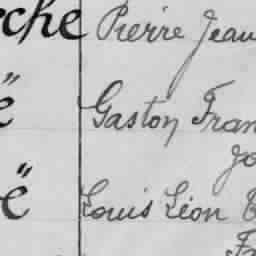 rche Pierre Jean
ë Gaston Fran
Jo
ë Louis Léon
Fr